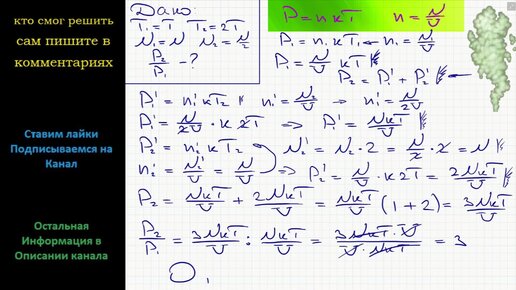 кто смог решить
сам пишите в
комментариях
Ставим лайки
Подписываемся на
Канал
Остальная
Информация в
Описании канала
Дано:
T₁ = T T₂ = 2T
N₁ = N N₂ = N/2
P₂/P₁ - ?
P = nkT n = N/V
P₁ = n₁kT₁ n₁ = N₁/V
P₁ = N/V kT
P₂ = P₁' + P₂'
P₁' = n₁'kT₂ n₁' = N/V → n₁' = N/2V
P₁' = N/2V · k2T ⇒ P₁' = NkT/V
P₂' = n₂'kT₂ N₂' = N₂ · 2 = N/2 · 2 = N
n₂' = N₂'/V = N/V ⇒ P₂' = N/V · k2T = 2NkT/V
P₂ = NkT/V + 2NkT/V = NkT/V (1+2) = 3NkT/V
P₂/P₁ = 3NkT/V : NkT/V = 3NkT · V / V · NkT = 3